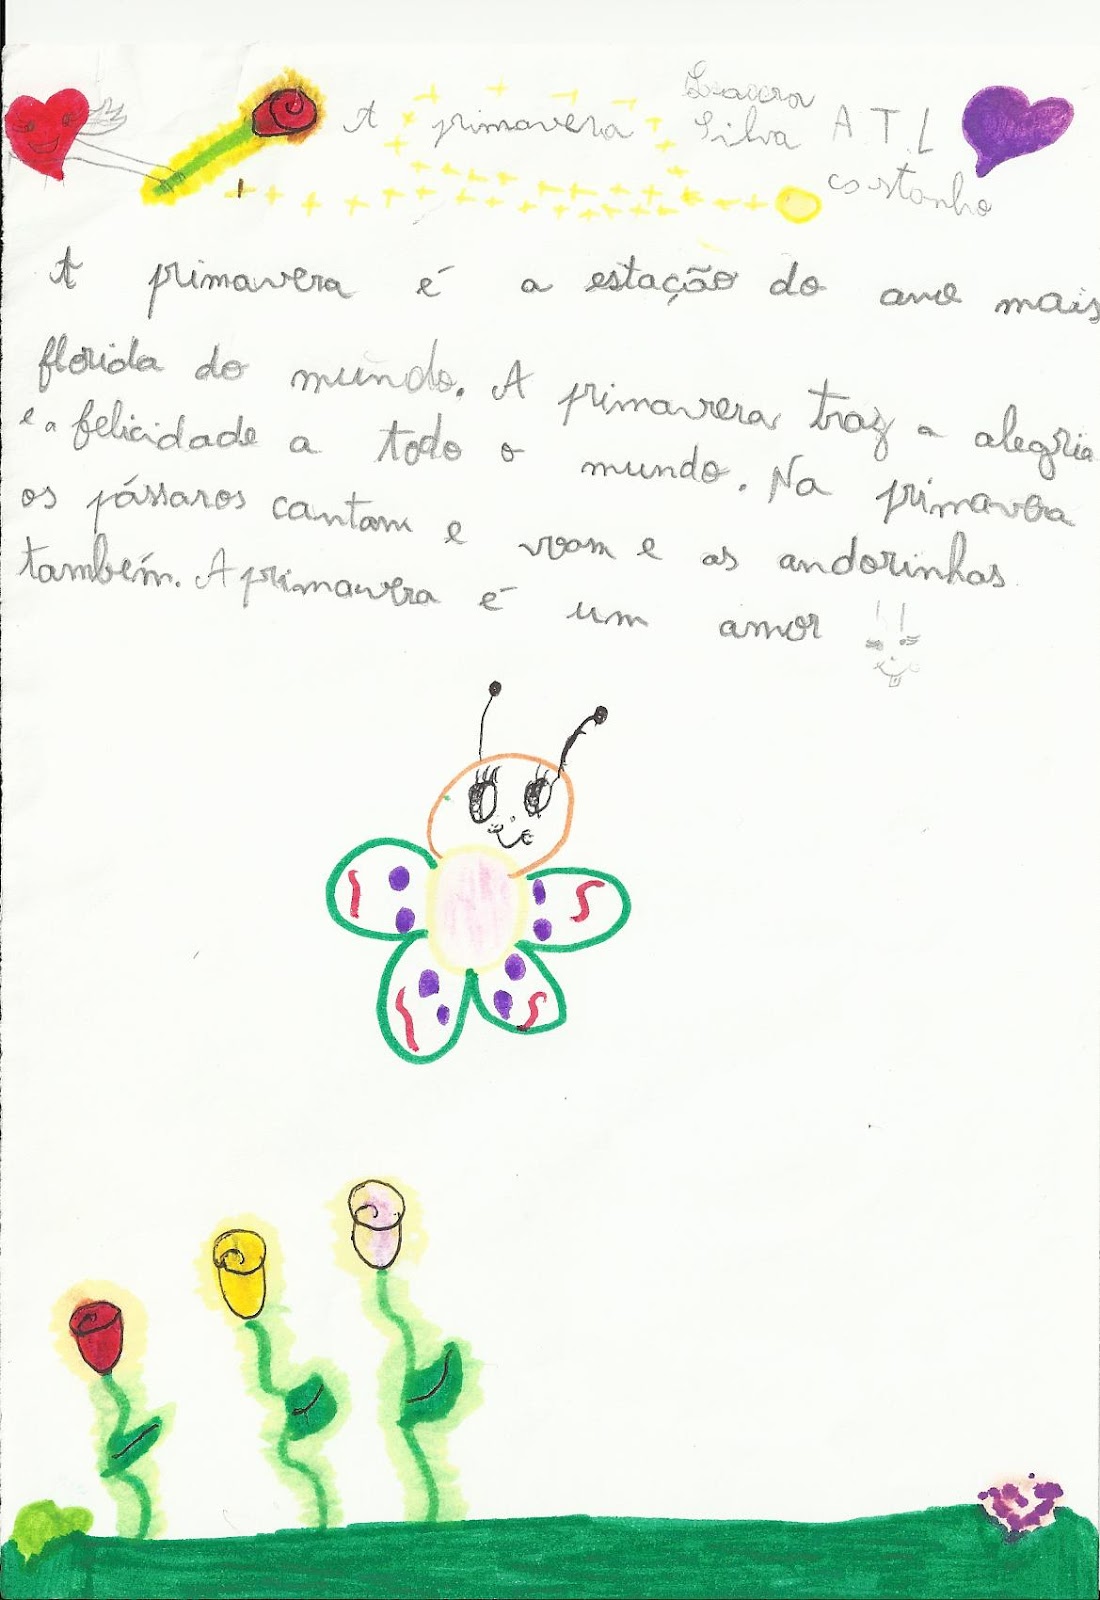 A primavera
Laura
Silva
A.T.L
castanho
A primavera é a estação do ano mais
florida do mundo. A primavera traz a alegria
e a felicidade a todo o mundo. Na primavera
os pássaros cantam e voam e as andorinhas
também. A primavera é um amor